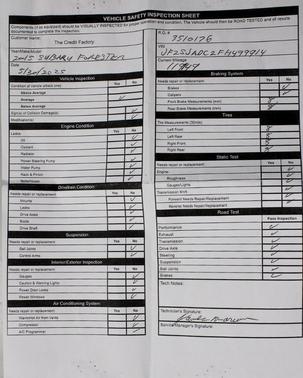 VEHICLE SAFETY INSPECTION SHEET
Components (if so equipped) should be VISUALLY INSPECTED for proper operation and condition. The Vehicle should then be ROAD TESTED and all results documented to complete the inspection.
Customer Name:
The Credit Factory
Year/Make/Model:
2015 SUBARU FORESTER
Date
5/20/2025
Vehicle Inspection
Condition of vehicle (check one) Yes No
Above Average
Average
Below Average
Signs of Collision Damage(s)
Modification(s)
Engine Condition
Yes No
Leaks
Oil
Coolant
Radiator
Power Steering Pump
Water Pump
Rack & Pinion
Belts/Hoses
Drivetrain Condition
Needs repair or replacement Yes No
Mounts
Leaks
Drive Axles
Boots
Drive Shaft
Suspension
Needs repair or replacement Yes No
Ball Joints
Control Arms
Interior/Exterior Inspection
Needs repair or replacement Yes No
Gauges
Caution & Warning Lights
Power Door Locks
Power Windows
Air Conditioning System
Needs repair or replacement Yes No
Warm/Hot Air from Vents
Compressor
A/C Programmer
R.O.#
35/0176
VIN
Current Mileage
Braking System
Needs repair or replacement Yes No
Brakes
Calipers
Front Brake Measurements (mm)
Rear Brake Measurements (mm)
Tires
Tire Measurements (32nds)
Left Front 8
Left Rear 8
Right Front 8
Right Rear 8
Static Test
Needs repair or replacement Yes No
Engine:
Roughness
Gauges/Lights
Transmission Shift
Forward Needs Repair/Replacement
Reverse Needs Repair/Replacement
Road Test
Pass Inspection
Performance
Exhaust
Transmission
Drive Axle
Steering
Suspension
Ball Joints
Brakes
Tech Notes:
Technician's Signature:
Service Manager's Signature: